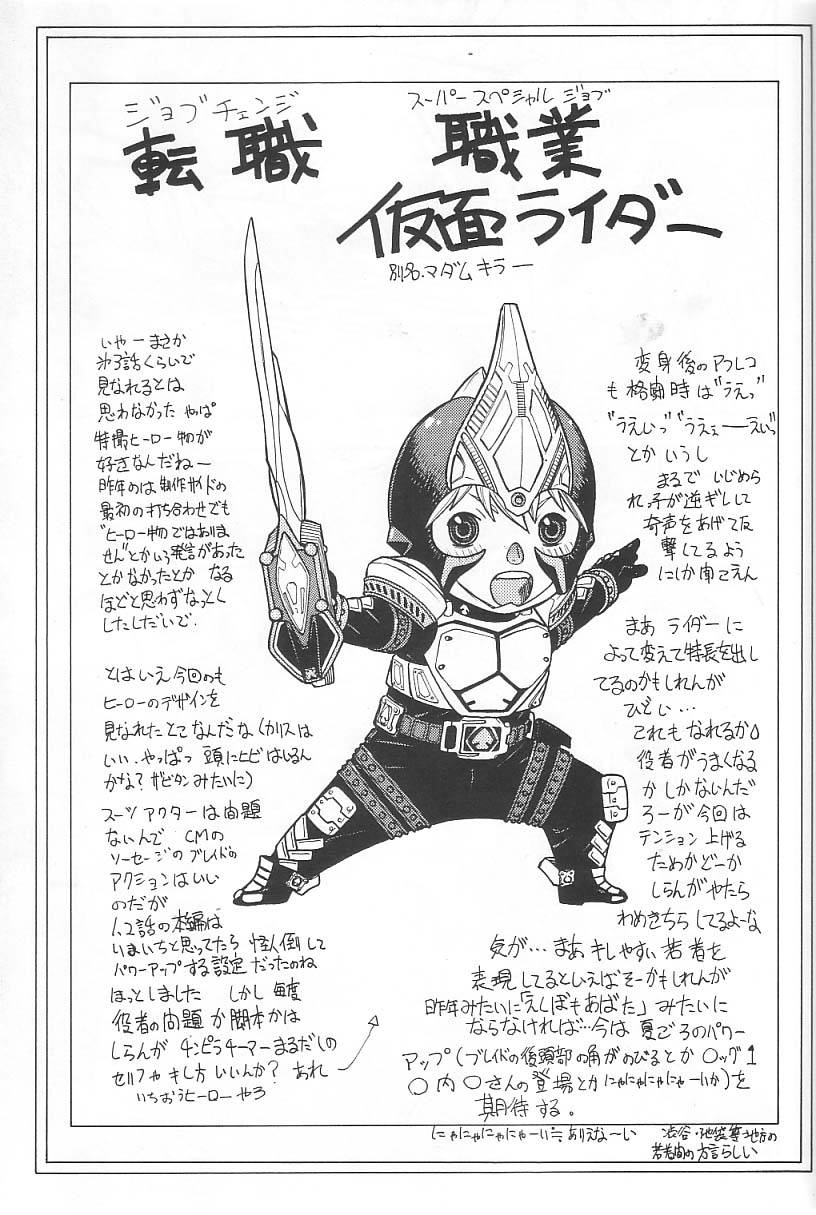 ジョブチェンジ
転職
スーパースペシャルジョブ
職業
仮面ライダー
別名.マダムキラー
いやーまさか
第3話くらいで
見なれるとは
思わなかった やっぱ
特撮ヒーロー物が
好きなんだねー
昨年のは制作サイドの
最初の打ち合わせでも
"ヒーロー物ではありま
せん"とかいう発言があった
とかなかったとか なる
ほどと思わずなっとく
したしだいで.
とはいえ今回のも
ヒーローのデザインを
見なれたとてなんだな(カリスは
いい.やっぱっ 頭にヒビはいるん
かな?ザビタンみたいに)
スーツアクターは問題
ないんで CMの
ソーセージのブレイドの
アクションはいい
のだが
1、2話の本編は
いまいちと思ってたら 怪人倒して
パワーアップする設定だったのね
ほっとしました しかし毎度
役者の問題か脚本かは
しらんが チンピラチーマーまるだしの
セリフやキレ方いいんか? あれ
いちおうヒーローやろ
変身後のアフレコ
も格闘時は"うえっ"
"うえいっ""うえぇーーえいっ"
とかいうし
まるでいじめら
れっ子が逆ギレして
奇声をあげて反
撃してるよう
にしか聞こえん
まあ ライダーに
よって変えて特長を出し
てるのかもしれんが
ひどい…
これもなれるか
役者がうまくなる
かしかないんだ
ろーが今回は
テンション上げる
ためかどーか
しらんがやたら
わめきちらしてるよーな
気が…まあキレやすい若者を
表現してるといえばそーかもしれんが
昨年みたいに「えくぼもあばた」みたいに
ならなければ…今は夏ごろのパワー
アップ(ブレイドの後頭部の角がのびるとか 〇ッグ1
〇内〇さんの登場とか にゃにゃにゃにゃーいか)を
期待する。
にゃにゃにゃにゃーい≒ありえな〜い
渋谷・池袋等地方の
若者間の方言らしい